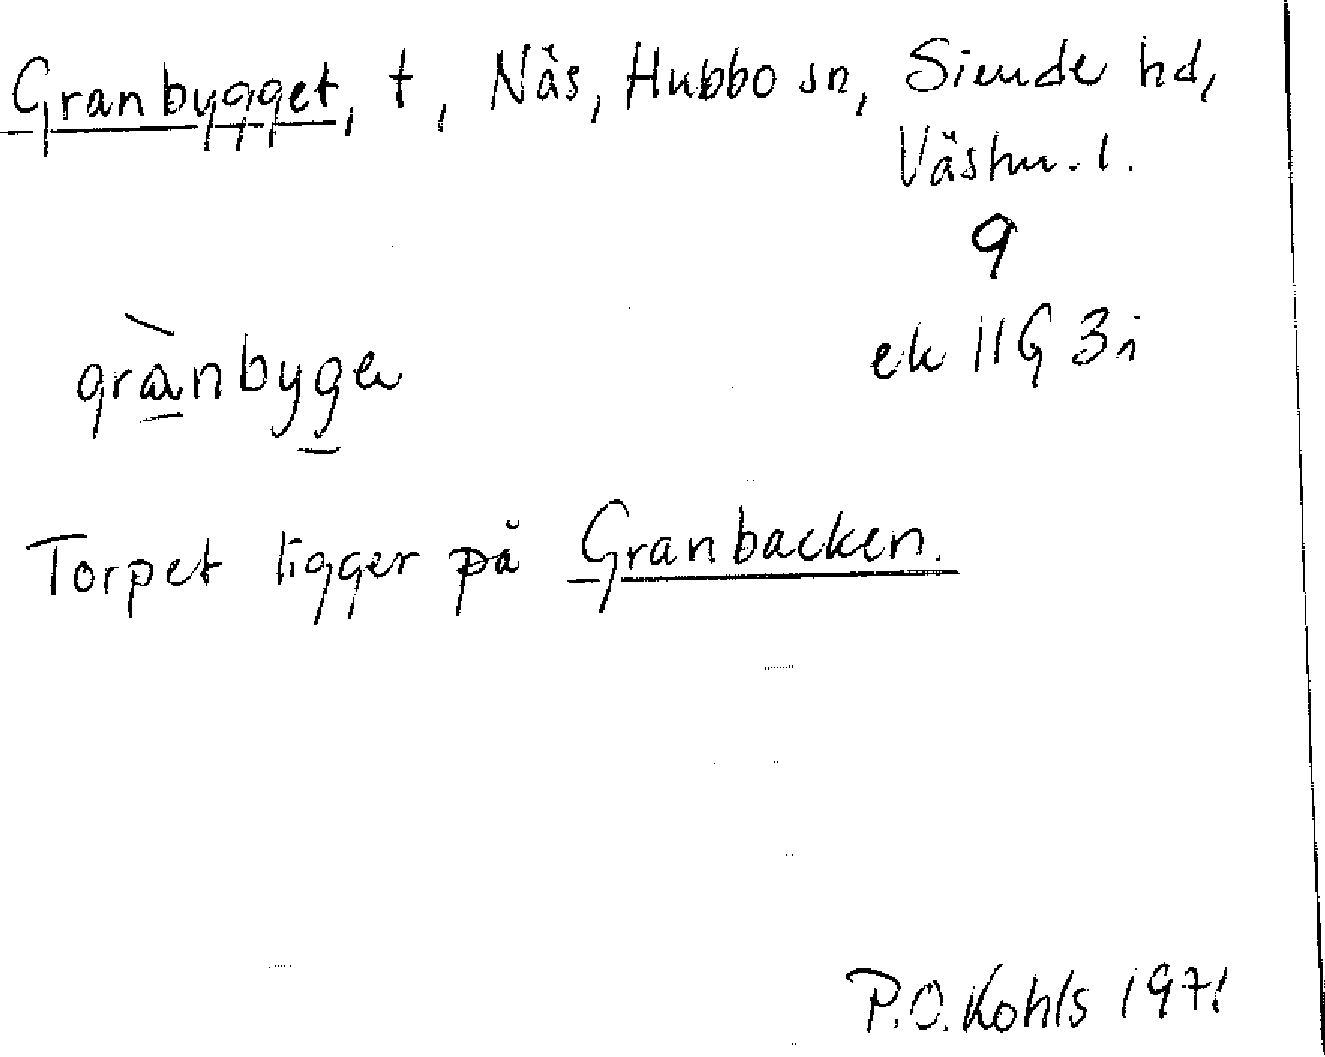 Granbygget, t, Näs, Hubbo sn, Siende hd,
Västm. l.
9
ek 11G 3i
granbyga
Torpet ligger på Granbacken.
P.O. Kohls 1971